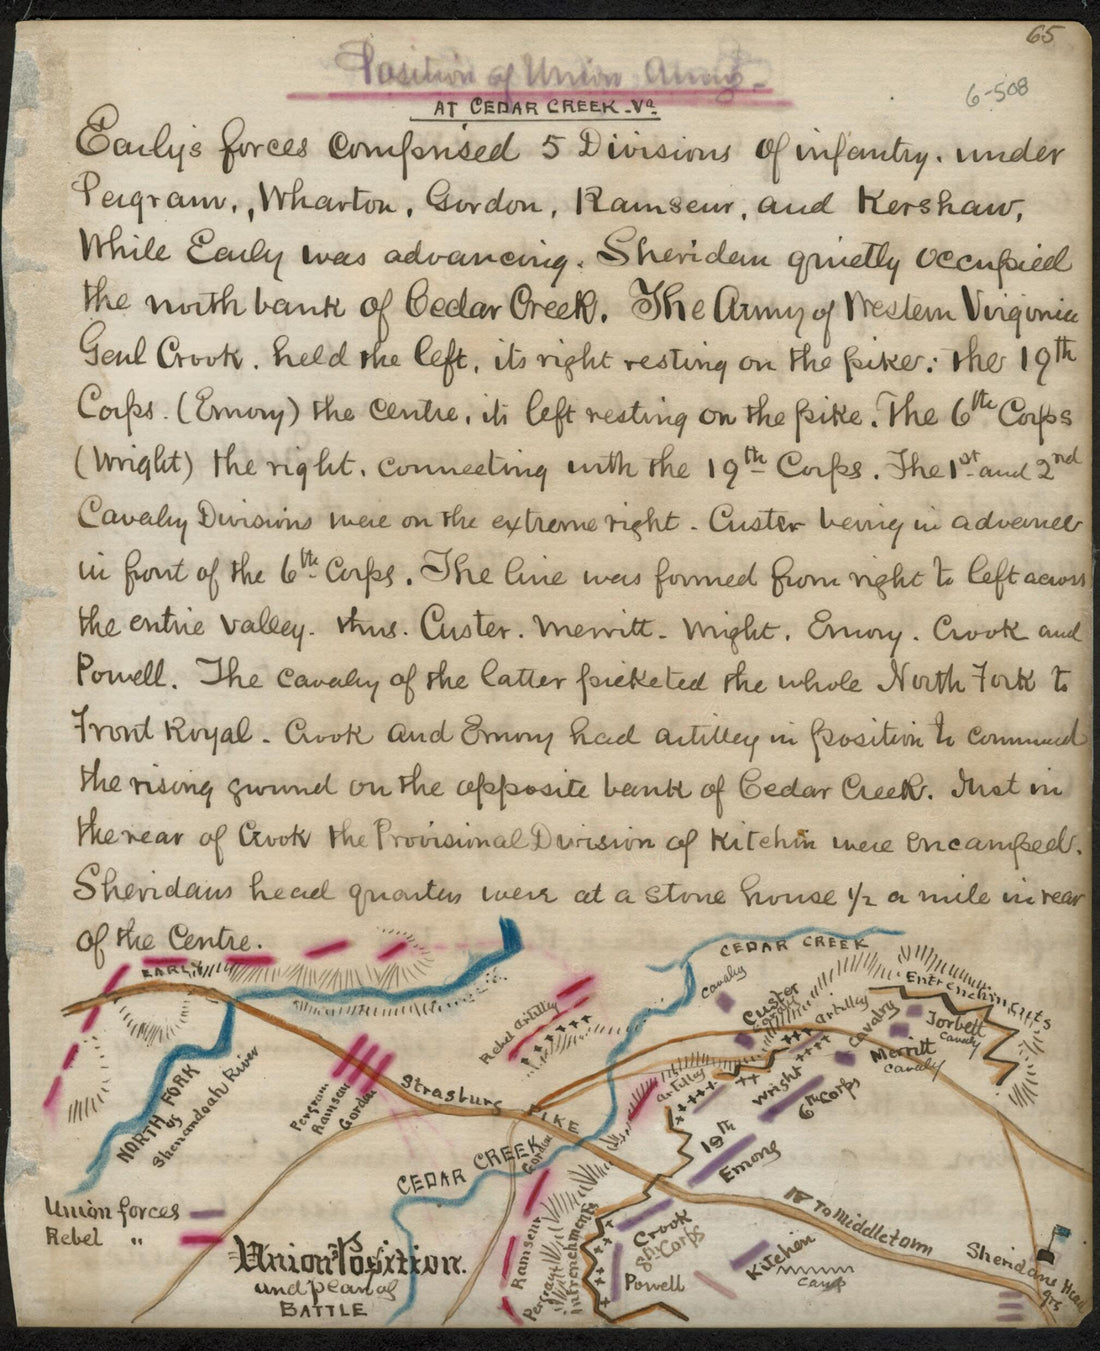 65
Position of Union Army-
6-508
AT CEDAR CREEK-Va.
Early's forces comprised 5 Divisions of infantry. under
Pegram., Wharton, Gordon, Ramseur, and Kershaw,
While Early was advancing. Sheridan quietly occupied
the north bank of Cedar Creek. The Army of Western Virginia
Genl Crook. held the left, its right resting on the pike: the 19th
Corps. (Emory) the centre, its left resting on the pike. The 6th Corps
(Wright) the right. connecting with the 19th Corps. The 1st and 2nd
Cavalry Divisions were on the extreme right - Custer being in advance
in front of the 6th Corps. The line was formed from right to left across
the entire valley. thus. Custer. Merritt - Wright. Emory. Crook and
Powell. The cavalry of the latter picketed the whole North Fork to
Front Royal - Crook and Emory had artilley in position to command
the rising ground on the opposite bank of Cedar Creek. Just in
the rear of Crook the Provisional Division of Kitchin were encamped.
Sheridans head quarters were at a stone house 1/2 a mile in rear
of the Centre.
EARLY
CEDAR CREEK
Cavalry
Custer
Cavalry
Entrenchments
Artilley
Cavalry
Torbett
Cavaly
Merritt
Cavaly
Rebel Artilley
Artilley
Wright
6th Corps
NORTH FORK
of
Shenandoah River
Pergram
Ramseur
Gordon
Strasburg
PIKE
19th
Emory
CEDAR CREEK
Gordon
To Middletown
Union forces
Rebel "
Union Position.
and plan of
BATTLE
Ramseur
Pergram
Intrenchments
Crook
8th Corps
Powell
Kitchen
Camp
Sheridans Head
qrs